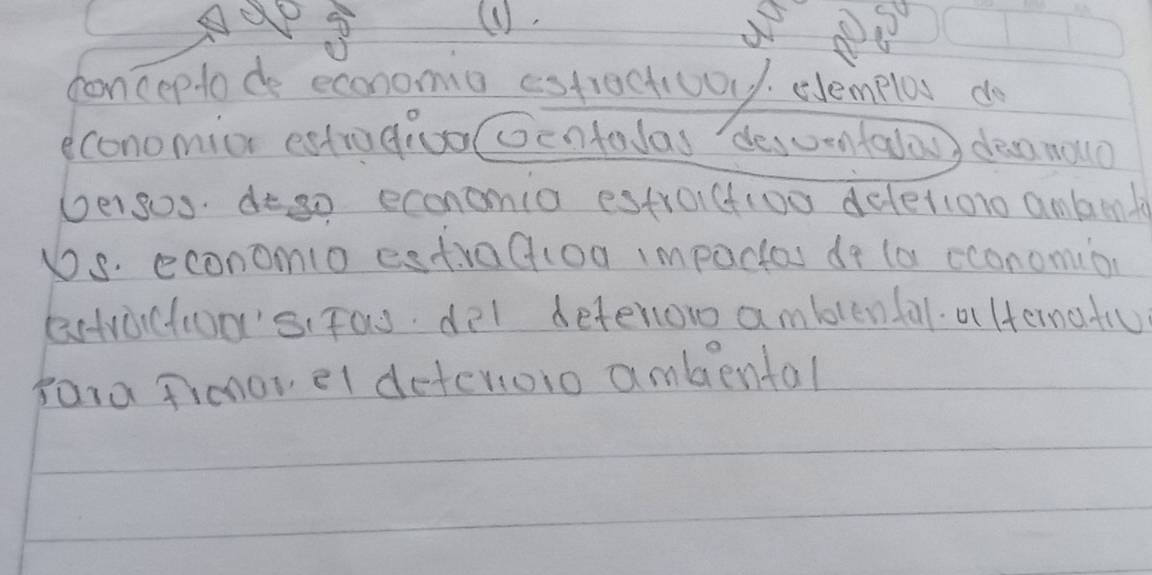 (1).
concepto de economia estractiva/. elemplos de
economia estractiva (ventajas desventajas) desarrollo
versus. deso economia estractiva deterioro ambienta
Vs. economia estractiva impactos de la economia
estractiva sifas. del deterioro ambiental. alternativ
para Fienar. el deterioro ambiental